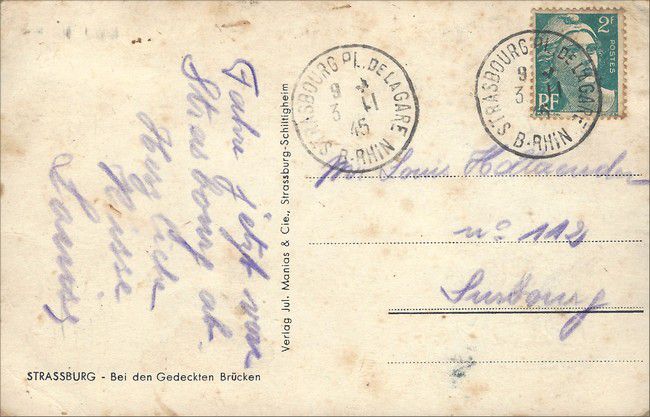 Fahre jetzt von
Strasbourg ab.
Herzliche
Küsse
Verlag Jul. Manias & Cie., Strassburg-Schiltigheim
STRASSBURG - Bei den Gedeckten Brücken
STRASBOURG PL. DE LA GARE
9 *
3 - 11
45
B-RHIN
STRASBOURG PL. DE LA GARE
9
3 11
B-RHIN
2F
POSTES
RF
Louis
n° 112
Surbourg